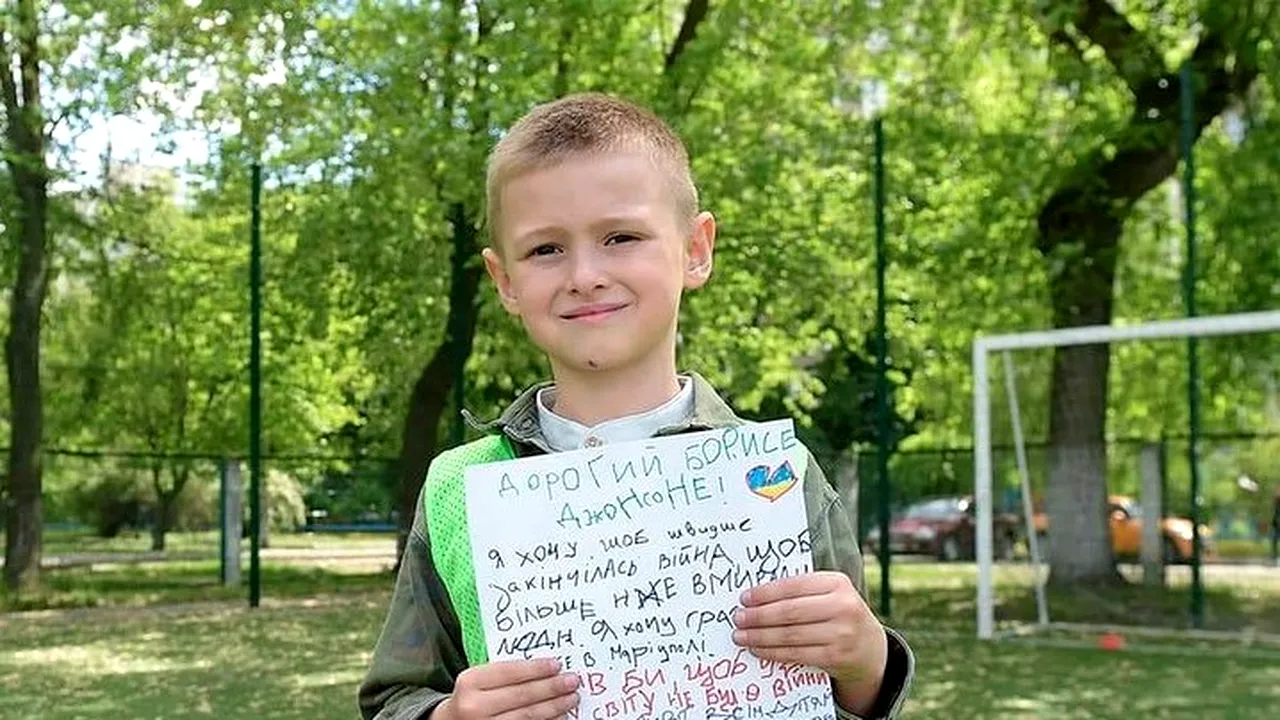 ДОРОГИЙ БОРИСЕ
ДЖОНСОНЕ!
Я ХОЧУ ЩОБ ШВИДШЕ
ЗАКІНЧІЛАСЬ ВІЙНА, ЩОБ
БІЛЬШЕ НЕ ВМИРАЛИ
ЛЮДИ. Я ХОЧУ
В МАРІУПОЛІ.
БИ, ЩОБ
СВІТУ НЕ БУЛО ВІЙНИ
ВСІМ